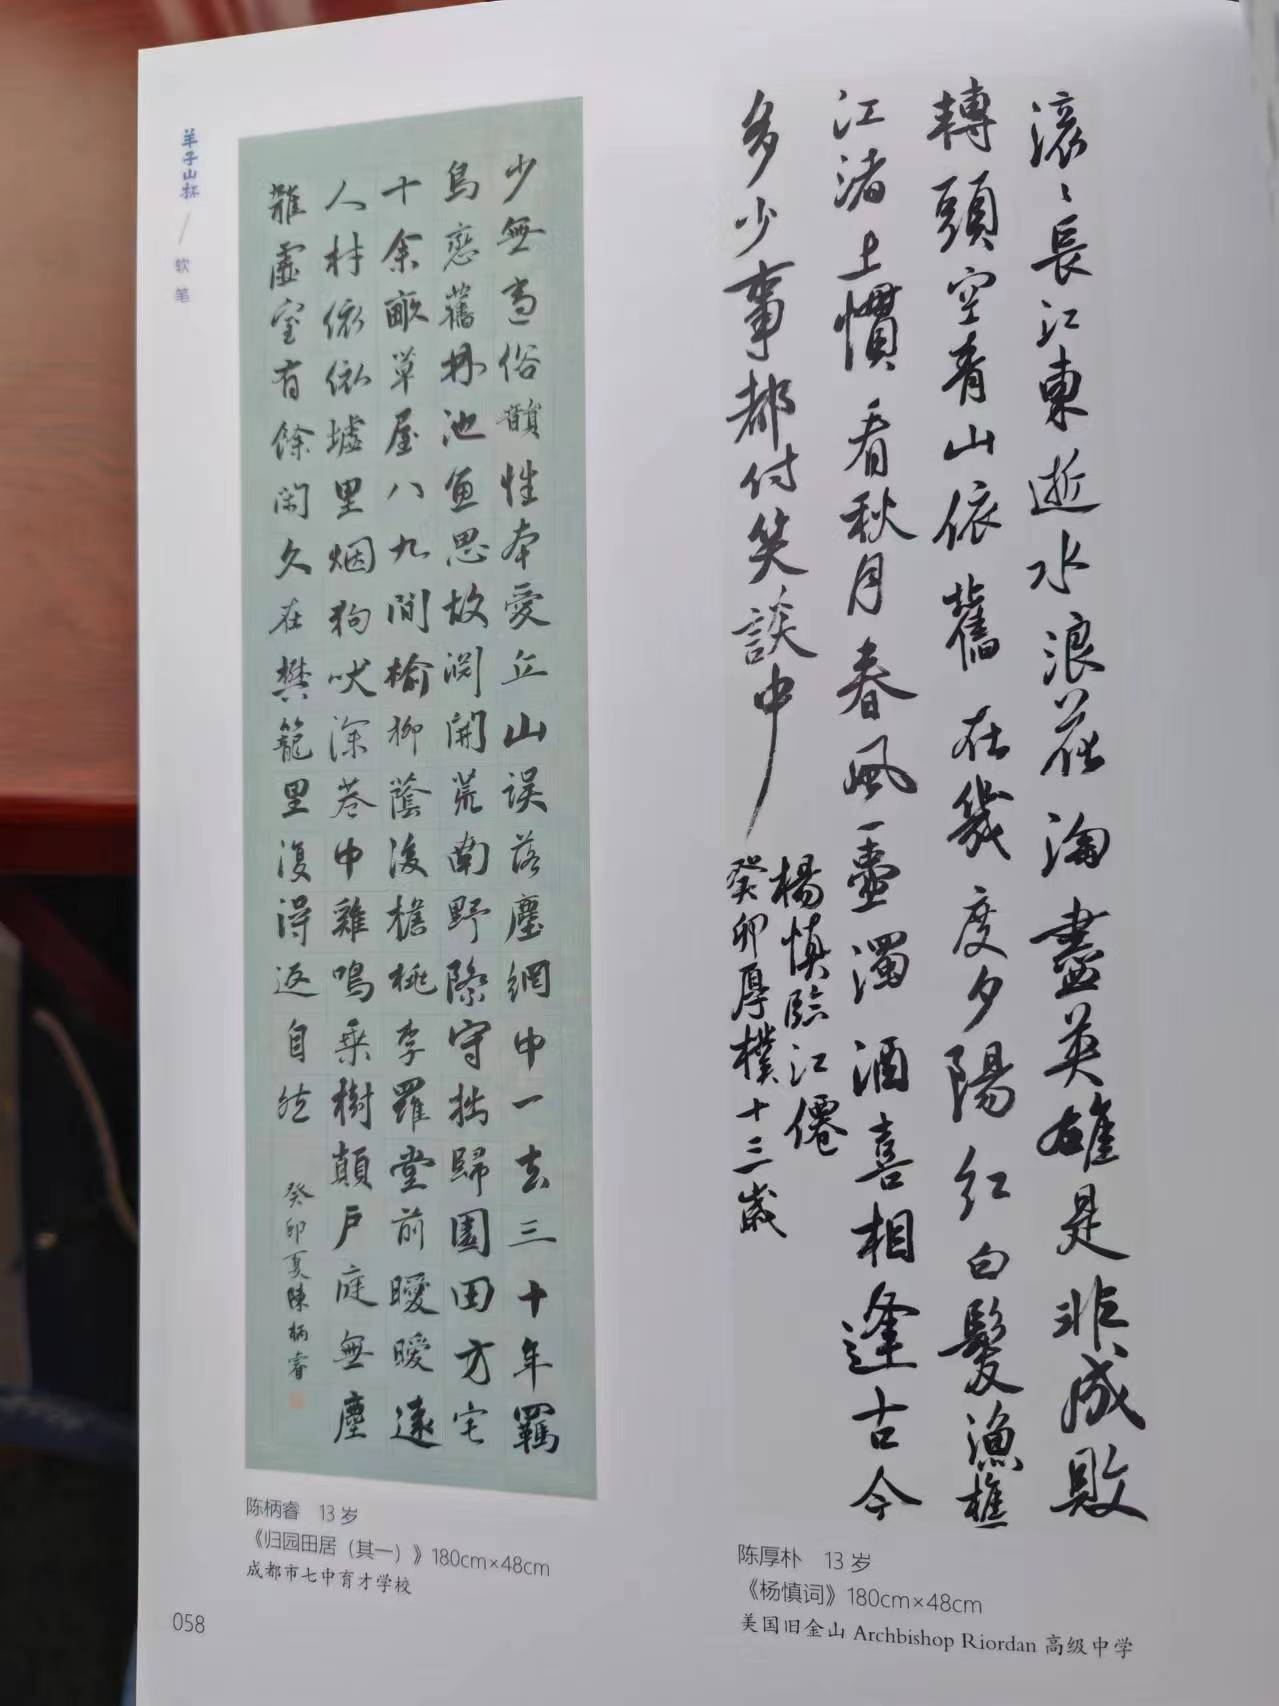 羊子山杯/软笔
滚〻長江東逝水浪花淘盡英雄是非成敗
轉頭空青山依舊在幾度夕陽紅白髮漁樵
江渚上慣看秋月春風一壺濁酒喜相逢古今
多少事都付笑談中
楊慎臨江僊
癸卯厚樸十三歲
少無適俗韻性本愛丘山误落塵網中一去三十年羈
鳥戀舊林池魚思故渊開荒南野際守拙歸園田方宅
十余畝草屋八九間榆柳蔭後檐桃李羅堂前曖曖遠
人村依依墟里烟狗吠深巷中雞鳴桑樹顛戶庭無塵
雜虛室有餘閑久在樊籠里復得返自然
癸卯夏陳柄睿
陈柄睿 13岁
《归园田居（其一）》180cm×48cm
成都市七中育才学校
陈厚朴 13岁
《杨慎词》180cm×48cm
美国旧金山 Archbishop Riordan 高级中学
058